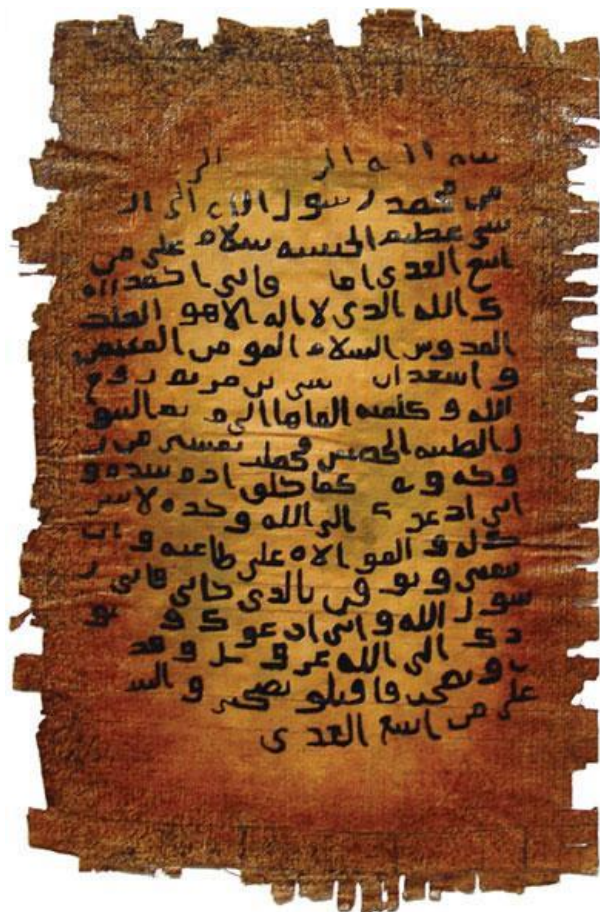 بسم الله الر الر
من محمد رسول الله الى ال
شي عظيم الحبشه سلام على من
اتبع الهدى اما فاني احمد الله
ك الله الذي لا اله الا هو الملك
القدوس السلام المومن المهيمن
و اشهد ان سى بن مريم روح
الله و كلمته القاها الى مريم البتو
ل الطيبه الحصينه فحملت بعيسى من ر
وحه و كما خلق ادم بيده و
اني ادعوك الى الله وحده لا شر
يك له و الموالاه على طاعته و ان
تتبعني و توقن بالذي جاني فاني ر
سول الله واني ادعوك و نو
دك الى الله عز و جل و قد
ت و نصحت فاقبلو نصحي و السـ
على من اتبع الهدى